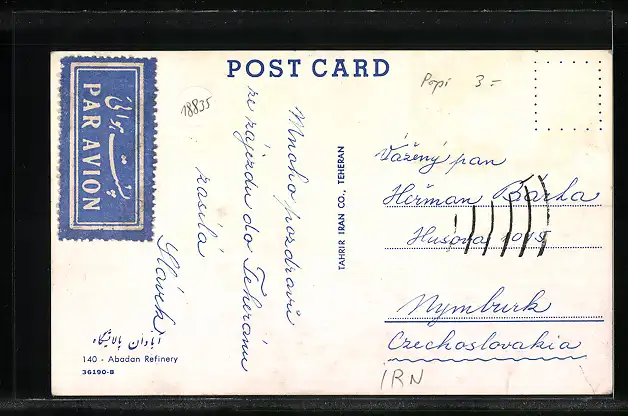 POST CARD
Popi 3=
18835
پست هوائی
PAR AVION
Mnoho pozdravů
ze zájezdu do Teheránu
zasílá
Slávek
TAHRIR IRAN CO., TEHERAN
Vážený pan
Heřman Bárha
Husova 1015
Nymburk
Czechoslovakia
آبادان پالایشگاه
140 - Abadan Refinery
36190-B
IRN